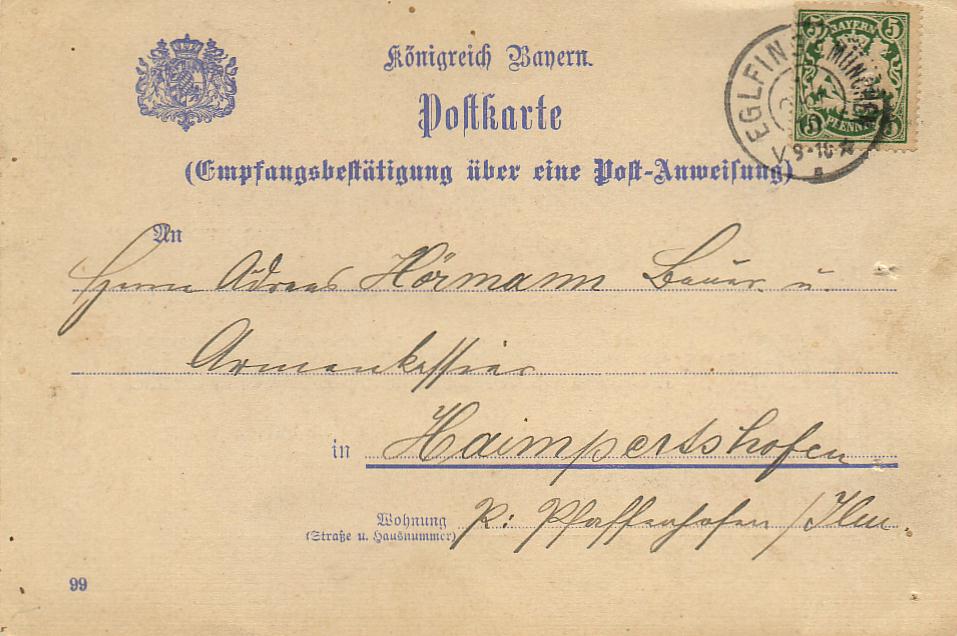 Königreich Bayern.
Postkarte
(Empfangsbestätigung über eine Post-Anweisung)
5 BAYERN 5
5 PFENNIG 5
EGLFING MÜNCHEN
V 9-10
An
Herrn Andreas Hörmann Bauer u.
Armenkassier
in Haimpertshofen
Wohnung P. Pfaffenhofen / Ilm.
(Straße u. Hausnummer)
99